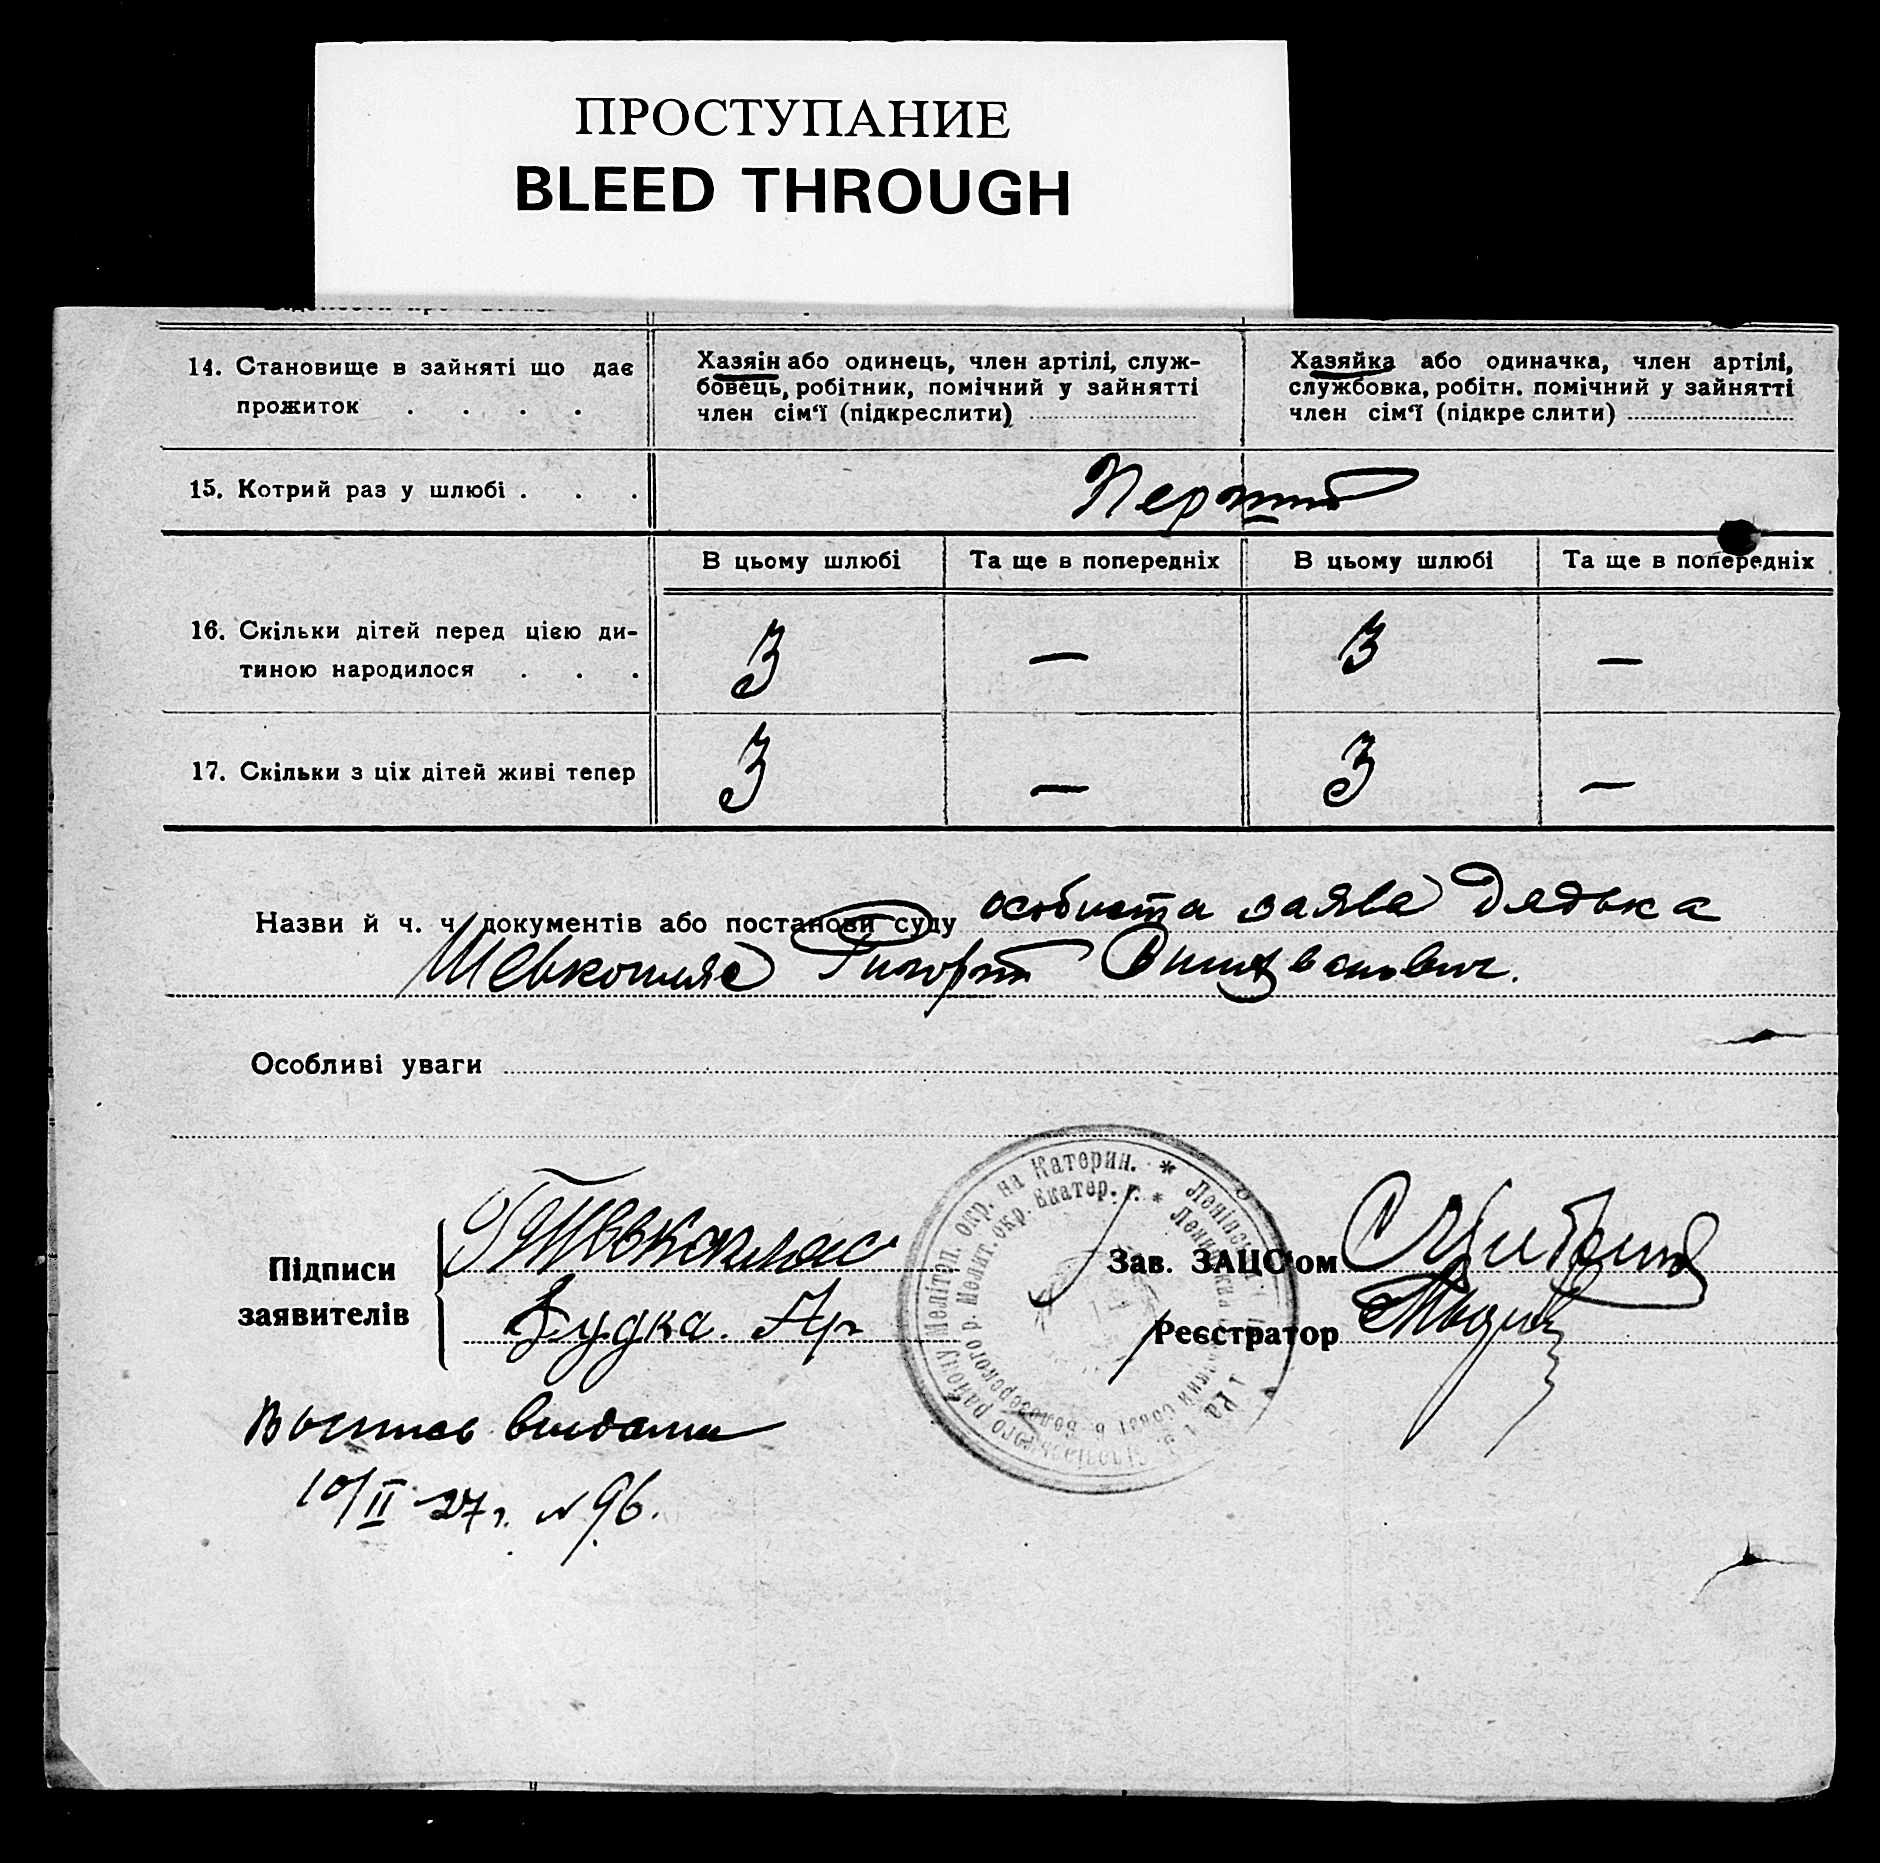 ПРОСТУПАНИЕ
BLEED THROUGH
14. Становище в зайняті що дає прожиток . . . .
Хазяін або одинець, член артілі, служ-
бовець, робітник, помічний у зайнятті
член сім'ї (підкреслити)
Хазяйка або одиначка, член артілі,
службовка, робітн. помічний у зайнятті
член сім'ї (підкре слити)
15. Котрий раз у шлюбі . . .
В цьому шлюбі Та ще в попередніх В цьому шлюбі Та ще в попередніх
16. Скільки дітей перед цією ди-
тиною народилося . . .
3 — 3 —
17. Скільки з ціх дітей живі тепер 3 — 3 —
Назви й ч. ч. документів або постанови суду особиста заява Дядька
Шевкопляс
Особливі уваги
Підписи
заявителів
Зав. ЗАЦС'ом
Реєстратор
Шевкопляс
Гудка
окр. на Катерин. * Ленінськ
Мелит. окр. Екатер. г. *
Выпись выдана
10/II 27 г. № 96.